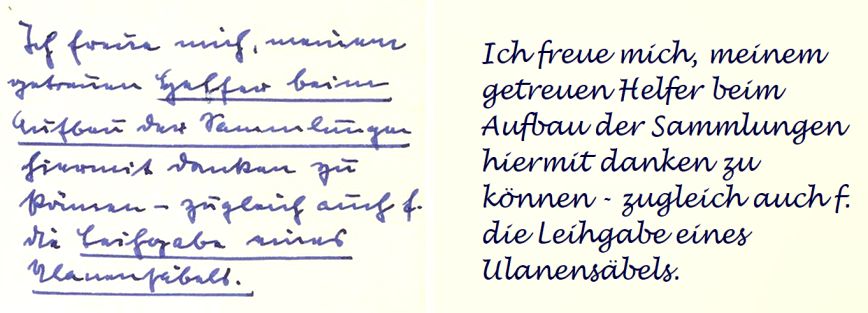 Ich freue mich, meinem
getreuen Helfer beim
Aufbau der Sammlungen
hiermit danken zu
können - zugleich auch f.
die Leihgabe eines
Ulanensäbels.
Ich freue mich, meinem
getreuen Helfer beim
Aufbau der Sammlungen
hiermit danken zu
können - zugleich auch f.
die Leihgabe eines
Ulanensäbels.